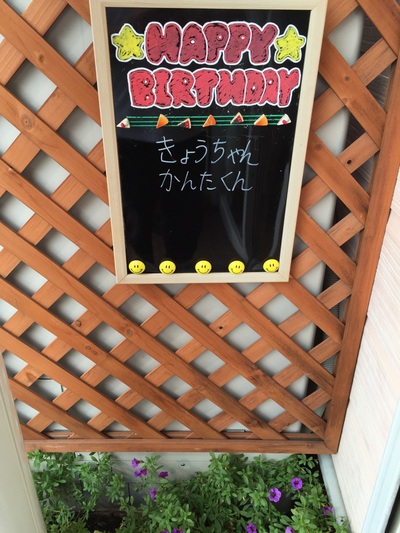 HAPPY
BIRTHDAY
きょうちゃん
かんたくん